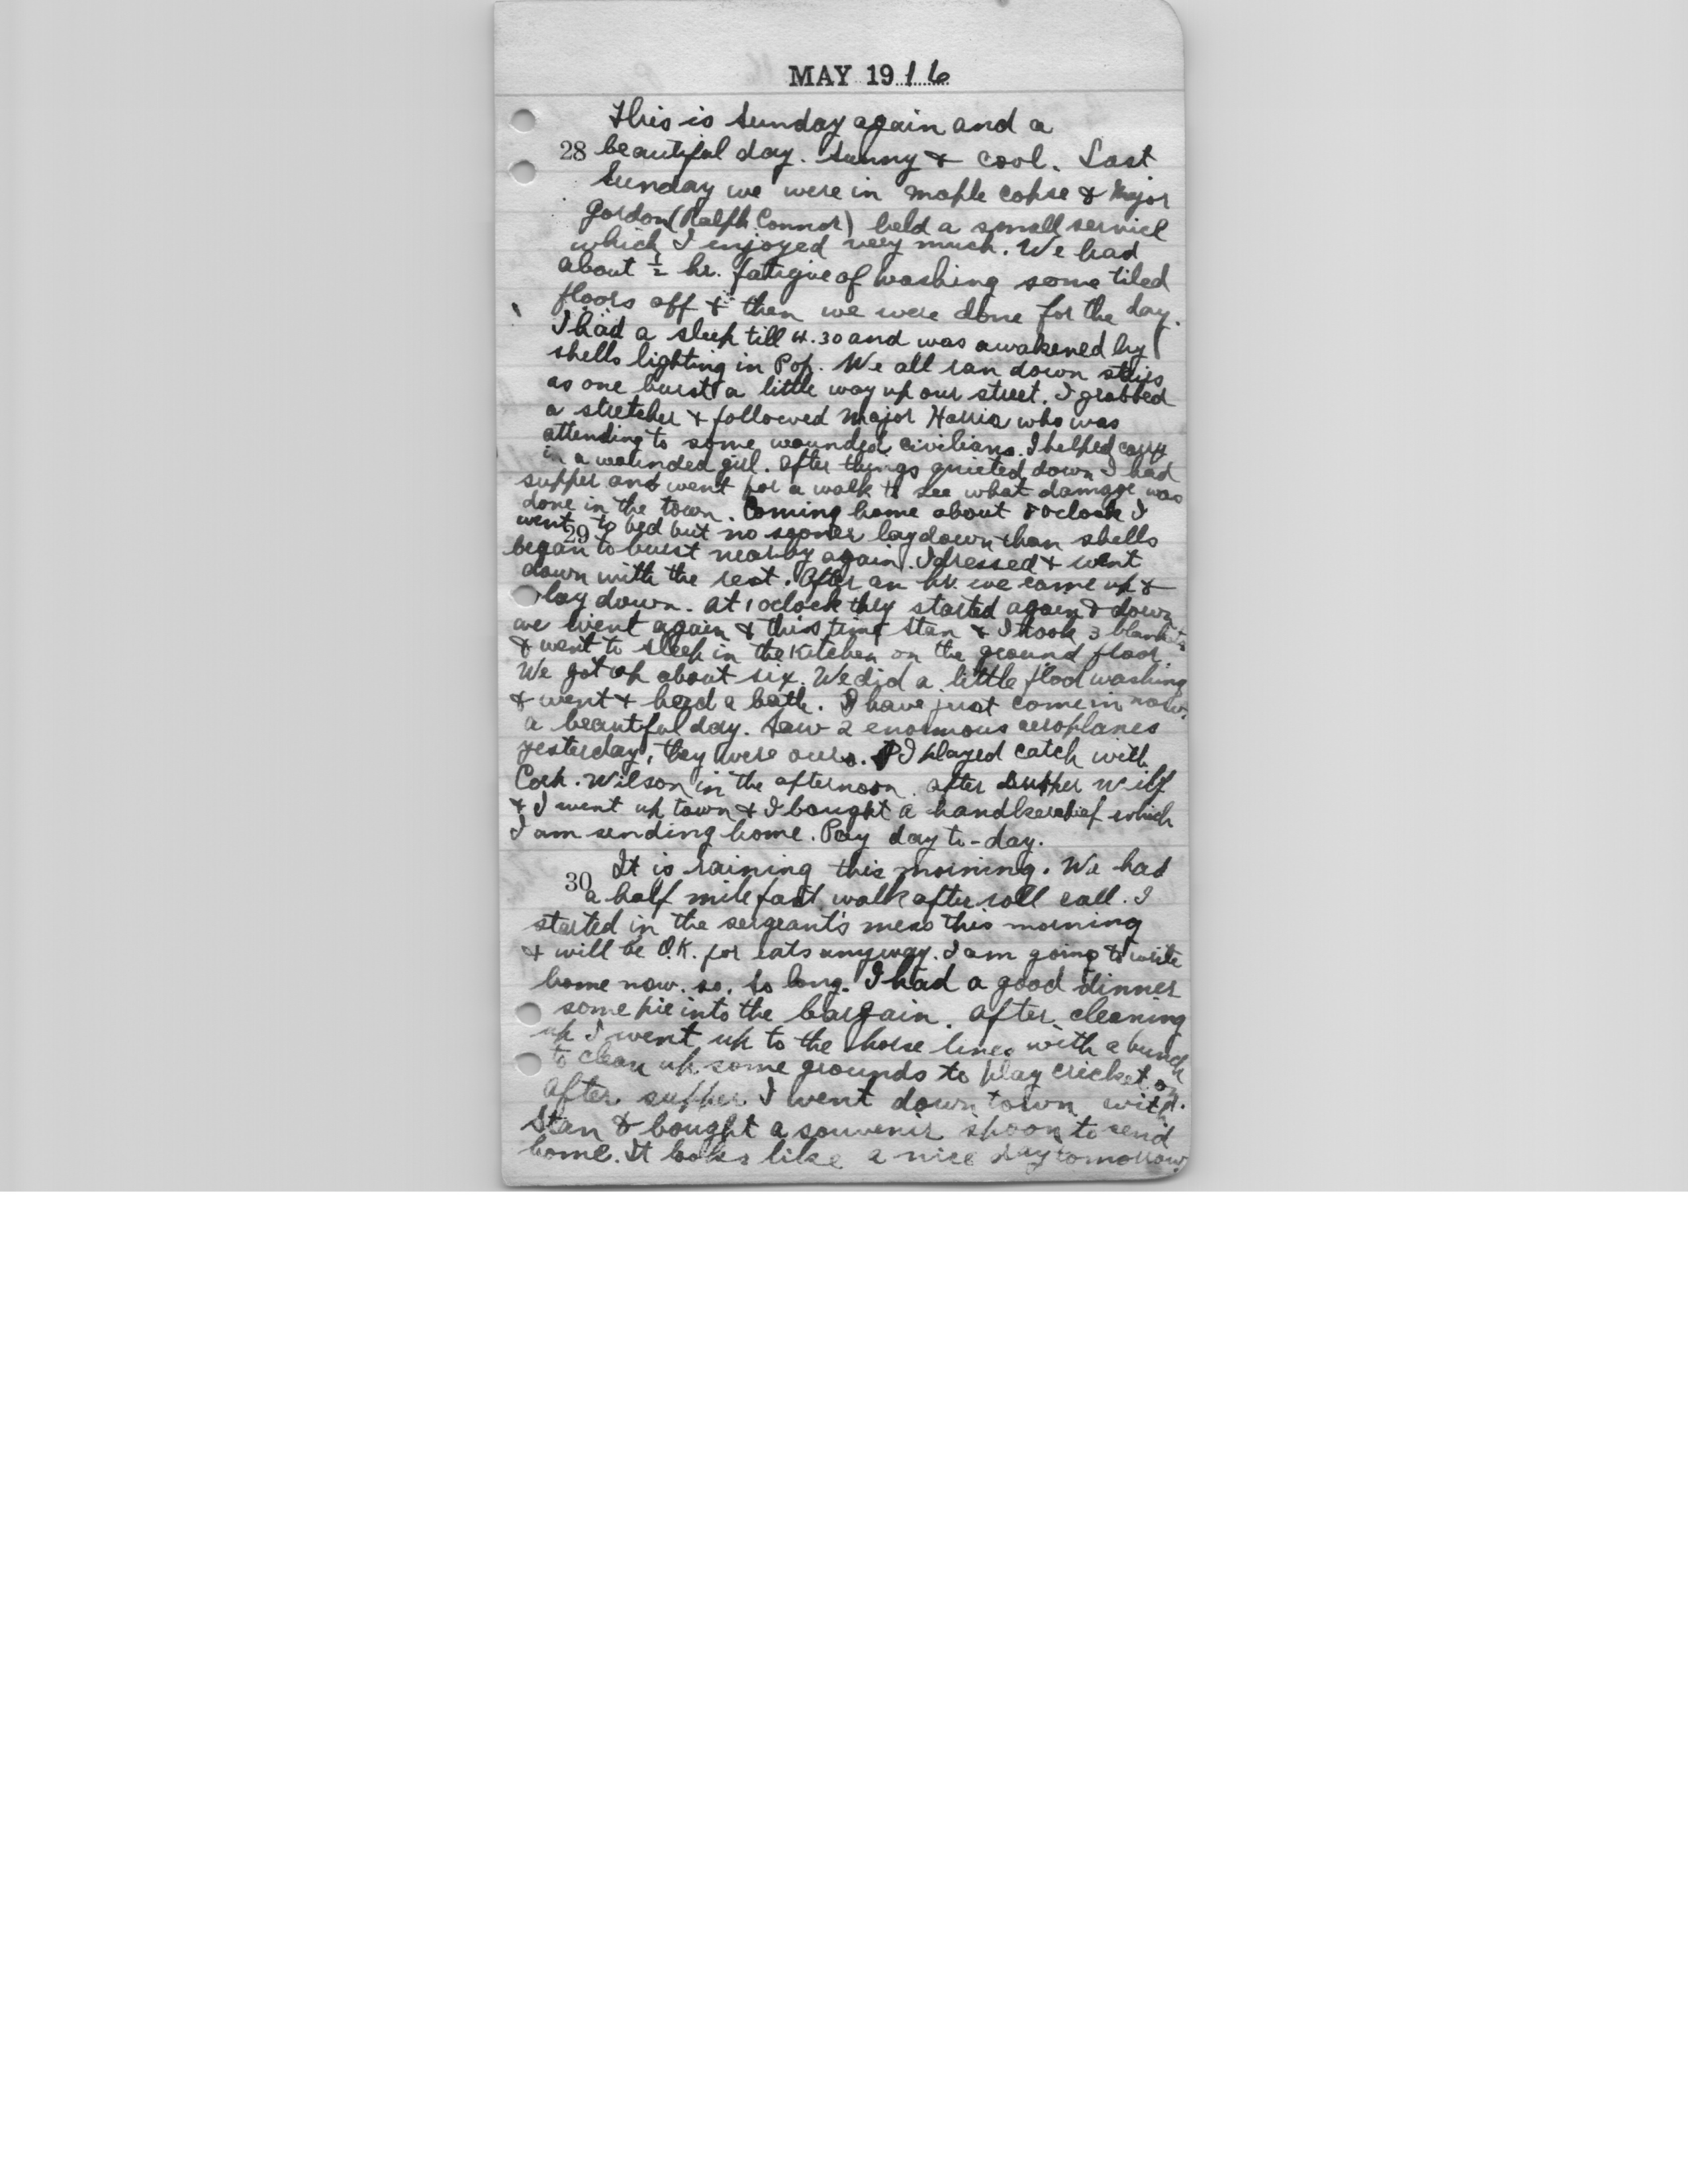 MAY 1916
This is Sunday again and a
28 beautiful day. Sunny & cool. Last
Sunday we were in maple copse & Major
Gordon (Ralph Connor) held a small service
which I enjoyed very much. We had
about ½ hr. fatigue of washing some tiled
floors off & then we were done for the day.
I had a sleep till 4.30 and was awakened by
shells lighting in Pop. We all ran down stairs
as one burst a little way up our street. I grabbed
a stretcher & followed Major Harris who was
attending to some wounded civilians. I helped carry
in a wounded girl. After things quieted down I had
supper and went for a walk to see what damage was
done in the town. Coming home about 8 oclock I
went to bed but no sooner lay down than shells
29
began to burst nearby again. I dressed & went
down with the rest. After an hr. we came up &
lay down. At 1 oclock they started again & down
we went again & this time Stan & I took 3 blankets
& went to sleep in the kitchen on the ground floor.
We got up about six. We did a little floor washing
& went & had a bath. I have just come in now.
a beautiful day. Saw 2 enormous aeroplanes
yesterday, they were ours. I played catch with
Corp. Wilson in the afternoon. After supper Wilf
& I went up town & I bought a handkerchief which
I am sending home. Pay day to-day.
It is raining this morning. We had
30 a half mile fast walk after roll call. I
started in the sergeant's mess this morning
& will be O.K. for eats anyway. I am going to write
home now. so. So long. I had a good dinner
some pie into the bargain. After cleaning
up I went up to the horse lines with a bunch
to clean up some grounds to play cricket on.
After supper I went down town with
Stan & bought a souvenir spoon to send
home. It looks like a nice day tomorrow.